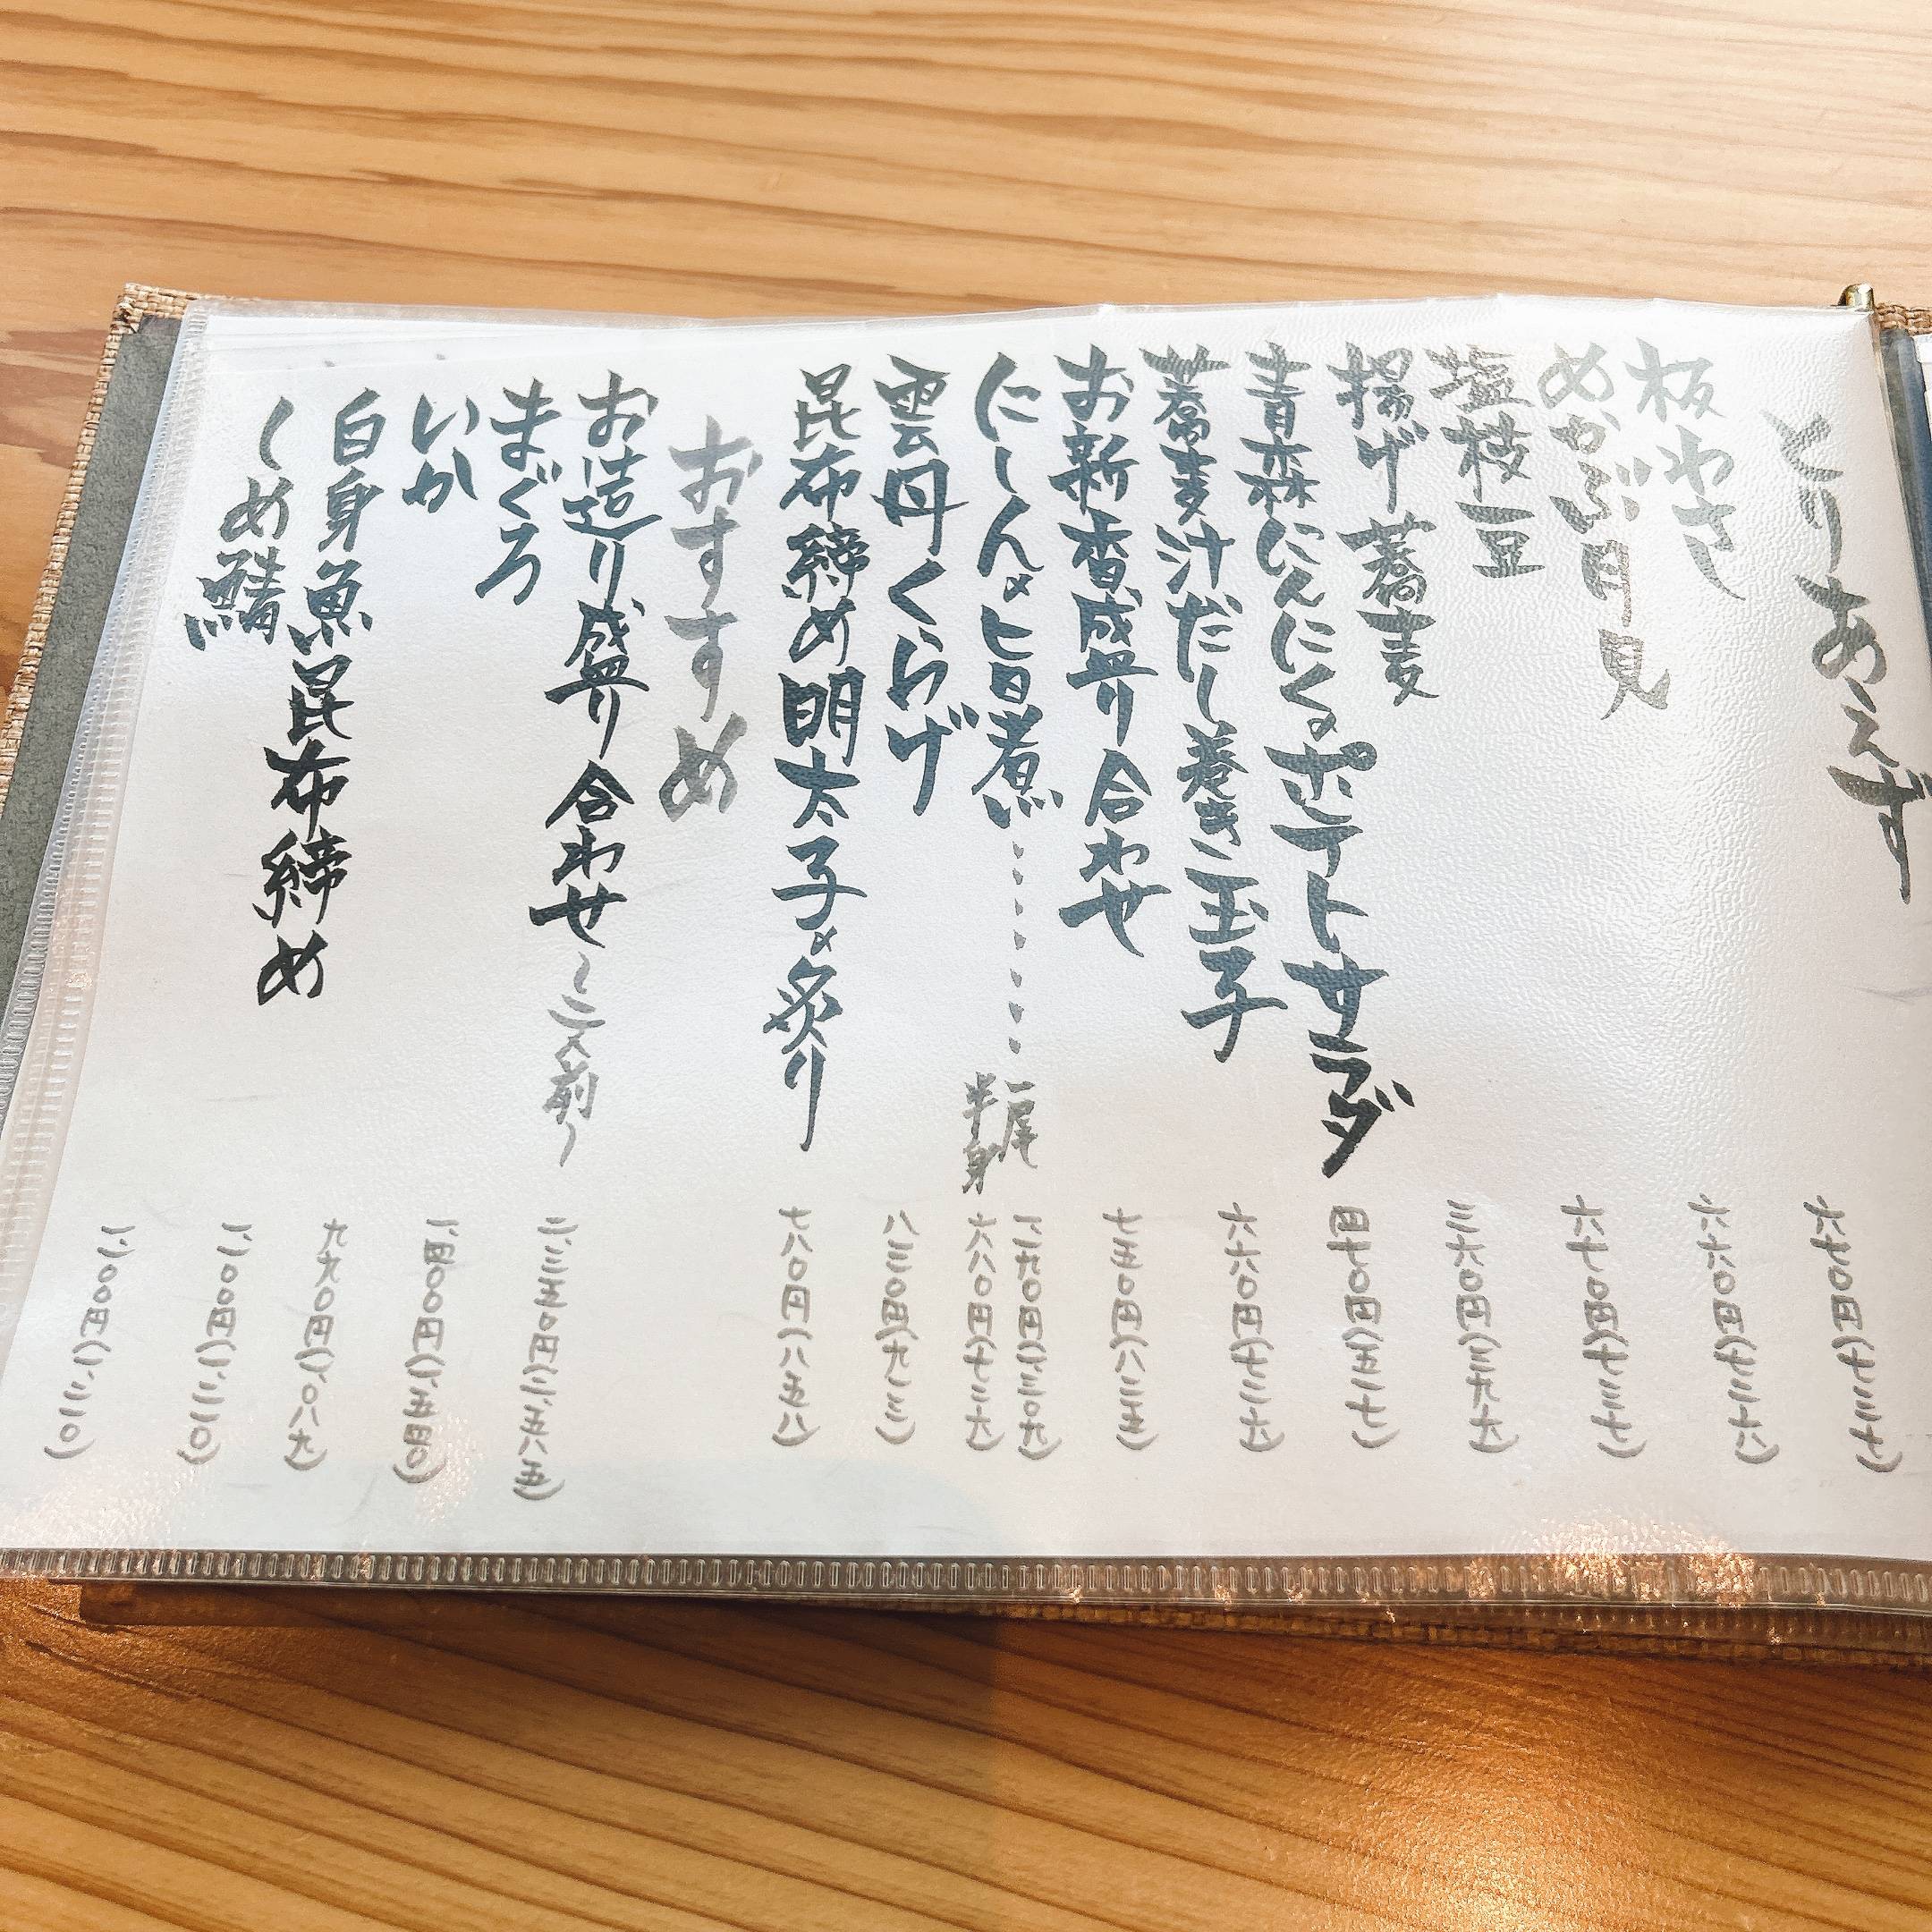 とりあえず
板わさ 六七〇円(七三七)
めかぶ月見 六六〇円(七二六)
塩枝豆 六七〇円(七三七)
揚げ蕎麦 三六〇円(三九六)
青森にんにくのポテトサラダ 四七〇円(五一七)
蕎麦汁だし巻き玉子 六六〇円(七二六)
お新香盛り合わせ 七五〇円(八二五)
にしんの旨煮・・・・・・・一尾 一、一九〇円(一、三〇九)
半身 六六〇円(七二六)
雲丹くらげ 八三〇円(九一三)
昆布締め明太子の炙り 七八〇円(八五八)
おすすめ
お造り盛り合わせ～二人前～ 二、三五〇円(二、五八五)
まぐろ 一、四〇〇円(一、五四〇)
いか 九九〇円(一、〇八九)
白身魚昆布締め 一、一〇〇円(一、二一〇)
しめ鯖 一、一〇〇円(一、二一〇)